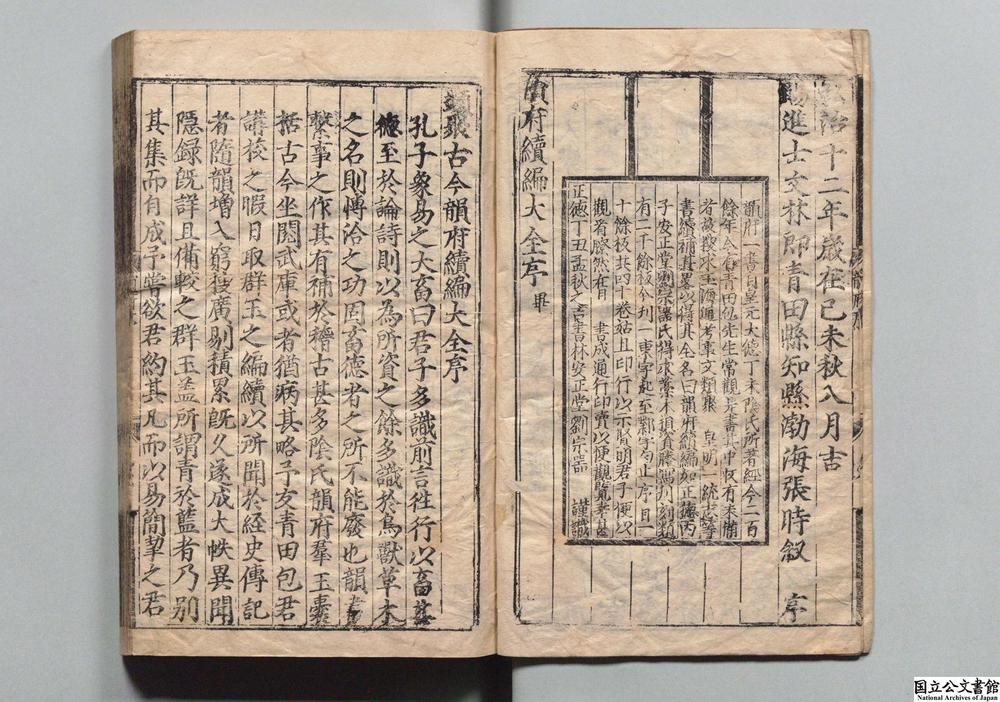 弘治十二年歲在己未秋八月古
賜進士文林郎青田縣知縣渤海張時敘 序
韻府一書自皇元大德丁未陰氏所著經今二百
餘年今有青田包先生常觀是書其中仍有未備
者
書續補其畧以得其全名曰韻府續編
子安正堂劉宗器氏得求
有一千餘板今刊一東字起至
十餘板共四十卷始且印行以示賢明君子便以
觀看瞭然在目 書成通行印賣以便觀覽
正德丁丑孟秋之吉書林安正堂劉宗器 謹識
韻府續編大全序 畢
類聚古今韻府續編大全序
孔子象易之大畜曰君子多識前言徃行以畜其
德至於論詩則以為所資之餘多識於鳥獸草木
之名則愽洽之功固畜德者之所不能廢也韻書
繫事之作其有補於稽古甚多陰氏韻府羣玉囊
括古今坐閱武庫或者猶病其略予友青田包君
講校之暇日取群玉之編續以所聞於経史傳記
者隨韻增入窮搜廣剔積累旣久遂成大帙異聞
隱録旣詳且備較之群玉盖所謂青於藍者乃別
其集而自成予嘗欲君約其凡而以易簡挈之君
国立公文書館
National Archives of Japan